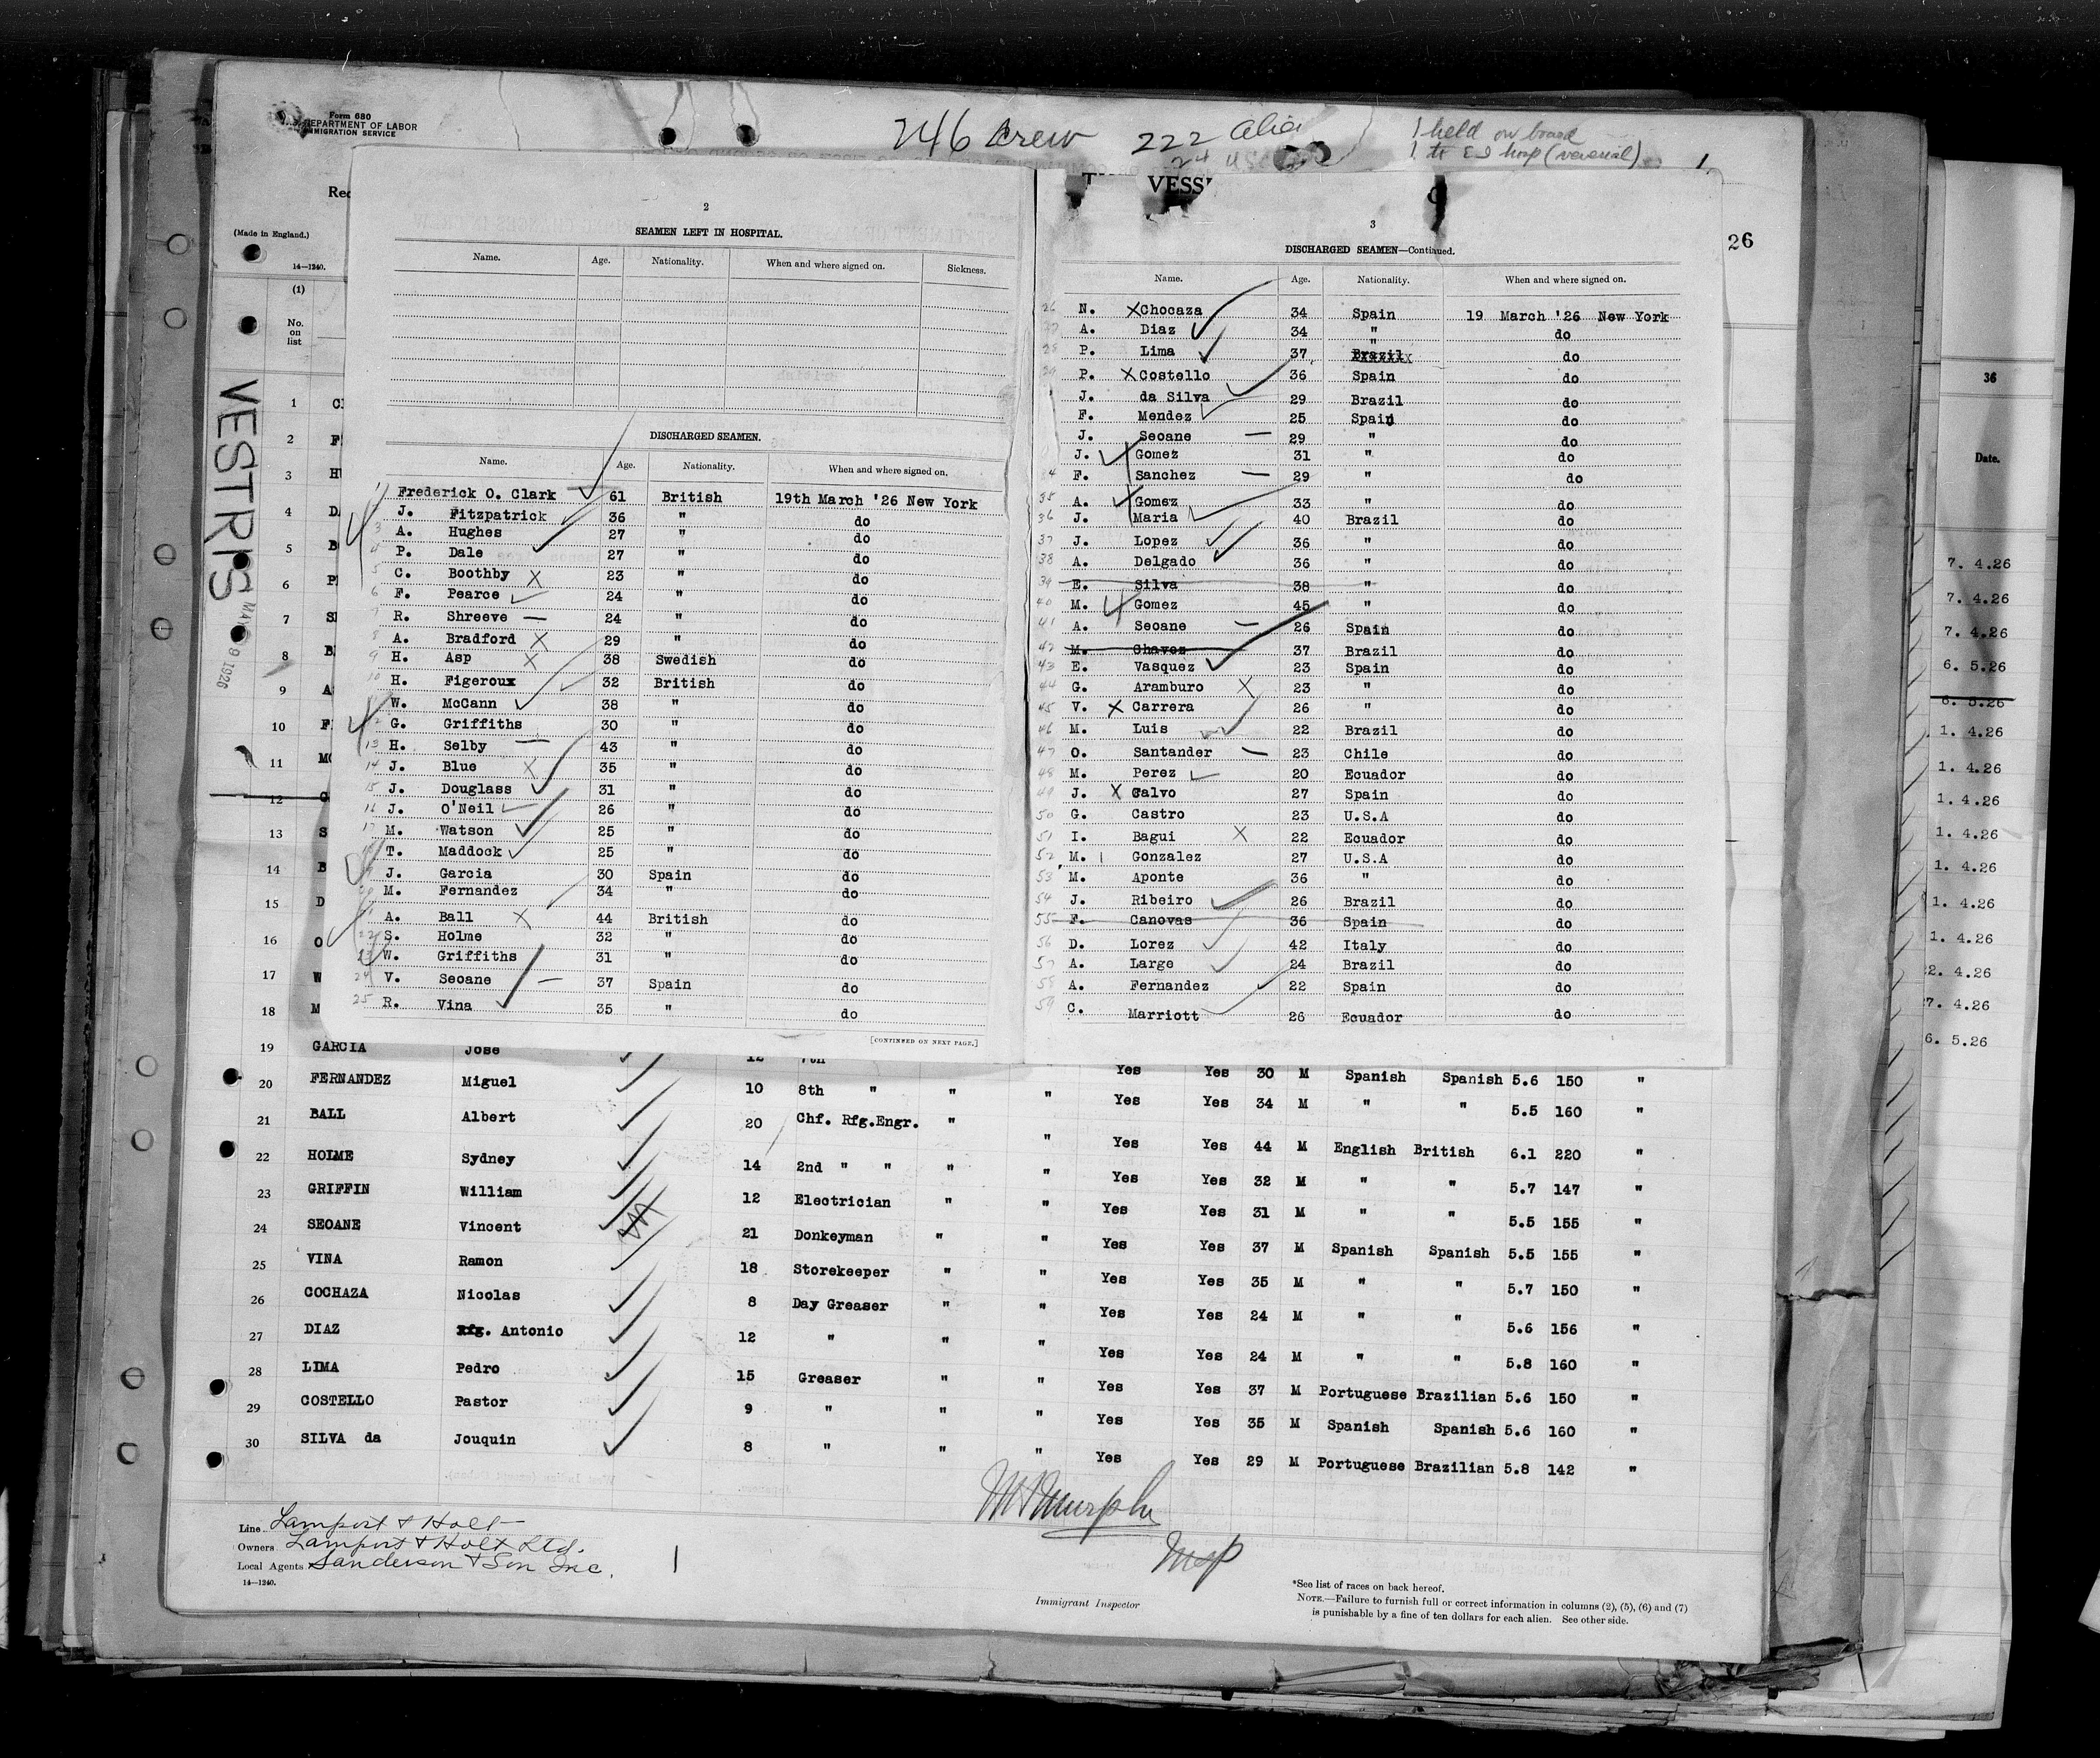 Form 680
DEPARTMENT OF LABOR
IMMIGRATION SERVICE
246 Crew 222 alien
24 USC
1 held on board
1 to E I hosp (venereal)
1.
VESS
26
(Made in England.)
14—1240.
(1)
No.
on
list
VESTRIS
9 1926
2
SEAMEN LEFT IN HOSPITAL.
Name. Age. Nationality. When and where signed on. Sickness.
DISCHARGED SEAMEN.
Name. Age. Nationality. When and where signed on.
1 Frederick O. Clark 61 British 19th March '26 New York
J. Fitzpatrick 36 " do
3 A. Hughes 27 " do
4 P. Dale 27 " do
5 C. Boothby X 23 " do
6 F. Pearce 24 " do
7 R. Shreeve — 24 " do
8 A. Bradford X 29 " do
9 H. Asp X 38 Swedish do
10 H. Figeroux 32 British do
W. McCann 38 " do
2 G. Griffiths 30 " do
13 H. Selby — 43 " do
14 J. Blue X 35 " do
15 J. Douglass 31 " do
16 J. O'Neil 26 " do
17 M. Watson 25 " do
T. Maddock 25 " do
J. Garcia 30 Spain do
M. Fernandez 34 " do
A. Ball X 44 British do
22 S. Holme 32 " do
23 W. Griffiths 31 " do
24 V. Seoane — 37 Spain do
25 R. Vina 35 " do
[CONTINUED ON NEXT PAGE.]
3
DISCHARGED SEAMEN—Continued.
Name. Age. Nationality. When and where signed on.
26 N. X Chocaza 34 Spain 19 March '26 New York
27 A. Diaz 34 " do
28 P. Lima 37 Brazil do
29 P. X Costello 36 Spain do
J. da Silva 29 Brazil do
F. Mendez 25 Spain do
J. Seoane — 29 " do
J. Gomez 31 " do
4 F. Sanchez — 29 " do
35 A. Gomez 33 " do
36 J. Maria 40 Brazil do
37 J. Lopez 36 " do
38 A. Delgado 36 " do
39 E. Silva 38 " do
40 M. Gomez 45 " do
41 A. Seoane — 26 Spain do
42 M. Chavez 37 Brazil do
43 E. Vasquez 23 Spain do
44 G. Aramburo X 23 " do
45 V. X Carrera 26 " do
46 M. Luis 22 Brazil do
47 O. Santander — 23 Chile do
48 M. Perez 20 Ecuador do
49 J. X Calvo 27 Spain do
50 G. Castro 23 U.S.A do
51 I. Bagui X 22 Ecuador do
52 M. Gonzalez 27 U.S.A do
53 M. Aponte 36 " do
54 J. Ribeiro 26 Brazil do
55 F. Canovas 36 Spain do
56 D. Lorez 42 Italy do
57 A. Large 24 Brazil do
58 A. Fernandez 22 Spain do
59 C. Marriott 26 Ecuador do
1
2
3
4
5
6
7
8
9
10
11
12
13
14
15
16
17
18
19 GARCIA Jose 12 7th Yes Yes 30 M Spanish Spanish 5.6 150 "
20 FERNANDEZ Miguel 10 8th " " " Yes Yes 34 M " " 5.5 160 "
21 BALL Albert 20 Chf. Rfg.Engr. " " Yes Yes 44 M English British 6.1 220 "
22 HOLME Sydney 14 2nd " " " " Yes Yes 32 M " " 5.7 147 "
23 GRIFFIN William 12 Electrician " " Yes Yes 31 M " " 5.5 155 "
24 SEOANE Vincent 21 Donkeyman " " Yes Yes 37 M Spanish Spanish 5.5 155 "
25 VINA Ramon 18 Storekeeper " " Yes Yes 35 M " " 5.7 150 "
26 COCHAZA Nicolas 8 Day Greaser " " Yes Yes 24 M " " 5.6 156 "
27 DIAZ Rfg. Antonio 12 " " " Yes Yes 24 M " " 5.8 160 "
28 LIMA Pedro 15 Greaser " " Yes Yes 37 M Portuguese Brazilian 5.6 150 "
29 COSTELLO Pastor 9 " " " Yes Yes 35 M Spanish Spanish 5.6 160 "
30 SILVA da Jouquin 8 " " " Yes Yes 29 M Portuguese Brazilian 5.8 142 "
Line Lamport & Holt
Owners Lamport & Holt Ltd.
Local Agents Sanderson & Son Inc.
14—1240.
Immigrant Inspector
*See list of races on back hereof.
NOTE.—Failure to furnish full or correct information in columns (2), (5), (6) and (7)
is punishable by a fine of ten dollars for each alien. See other side.
36
Date.
7. 4.26
7. 4.26
7. 4.26
6. 5.26
6. 5.26
1. 4.26
1. 4.26
1. 4.26
1. 4.26
1. 4.26
1. 4.26
1. 4.26
2. 4.26
7. 4.26
6. 5.26